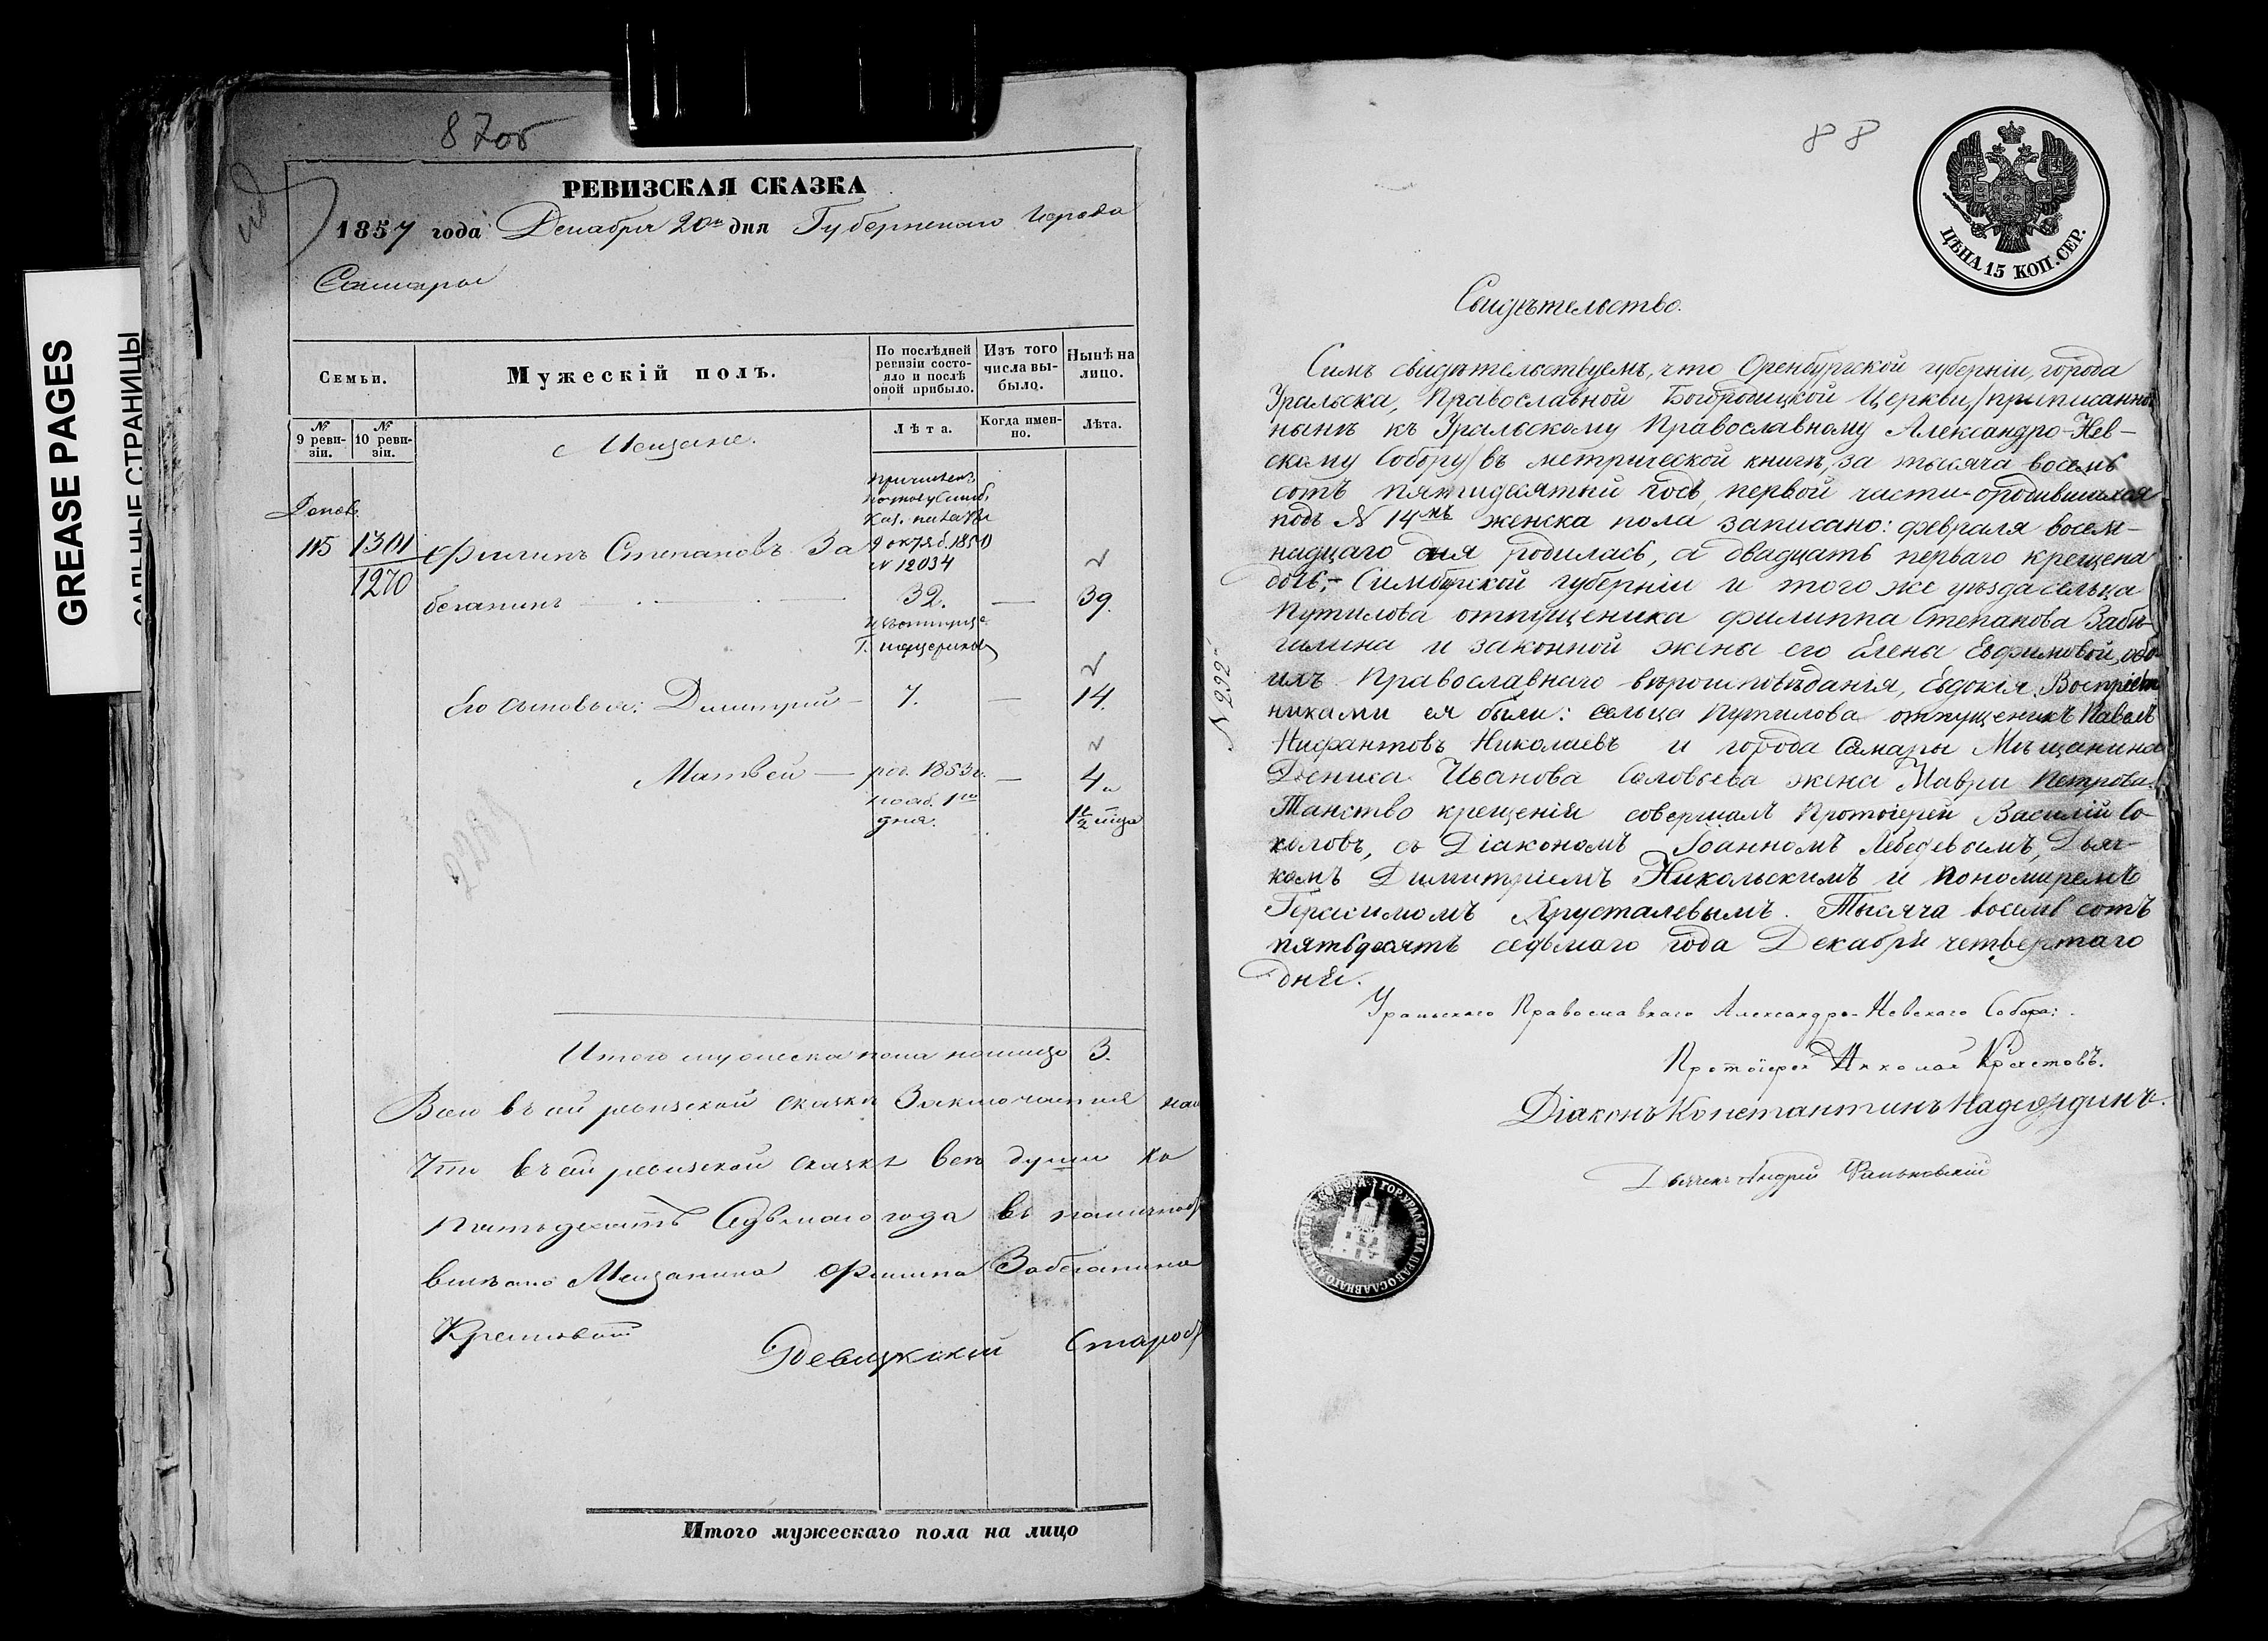 GREASE PAGES
САЛЬНЫЕ СТРАНИЦЫ
87об
РЕВИЗСКАЯ СКАЗКА
1857 года Декабря 20го дня Губернскаго Города
Самары
Семьи.
Мужескій полъ.
По послѣдней ревизіи состояло и послѣ оной прибыло.
Изъ того числа выбыло.
Нынѣ на лицо.
№ 9 ревизіи.
№ 10 ревизіи.
Мещане.
Лѣта.
Когда именно.
Лѣта.
причисленъ
Каз. палаты
Допол.
9 октяб. 1850
№ 12034
115 1301 Филипъ Степановъ За
1270
беганинъ 32. — 39.
Его сыновья: Димитрий — 7. — 14.
Матвей — род. 1853 г. — 4 и
нояб. 1го
дня. 1 1/2 мца
Итого мужеска пола налицо 3.
Въ сей ревизской сказки Заключается
Что въ сей ревизской сказке все души
Пятьдесятъ Седьмаго года въ
Мещанина Филипа Забеганина
Ревизский Старос
Итого мужескаго пола на лицо
88
ЦѢНА 15 КОП. СЕР.
Свидѣтельство.
Симъ свидѣтельствуемъ, что Оренбургской губерніи, города
Уральска, Православной Богородицкой Церкви, /приписанной
нынѣ къ Уральскому Православному Александро-Нев-
скому Собору/ въ метрической книгѣ, за тысяча восемь
сотъ пятидесятый годъ, первой части о родившихся
подъ № 14мъ женска пола записано: февраля восем-
надцаго дня родилась, а двадцать перваго крещена
дочь, - Симбирской губерніи и того же уѣзда сельца
Путилова отпущеника Филиппа Степанова Забѣ-
галина и законной жены его Елены Евфимовой, обо-
ихъ Православнаго вѣроисповѣданія, Евдокія. Воспріем
никами ея были: сельца Путилова отпущеникъ Павелъ
Нифантовъ Николаевъ и города Самары Мѣщанина
Дениса Иванова Соловьева жена Мавра Петрова.
Таинство крещенія совершалъ Протоіерей Василій Со-
коловъ, съ Діакономъ Іоанномъ Лебедевымъ, Дьяч-
комъ Димитріемъ Никольскимъ и Пономаремъ
Герасимомъ Хрусталевымъ. Тысяча восемь сотъ
пятьдесятъ седьмаго года Декабря четвертаго
дня.
№ 292
Уральскаго Православнаго Александро-Невскаго Собора:
Протоіерей Николай
Діаконъ Константинъ Надеждинъ.
Дьячекъ Андрей
ГОР. УРАЛЬСКА ПРАВОСЛАВНАГО